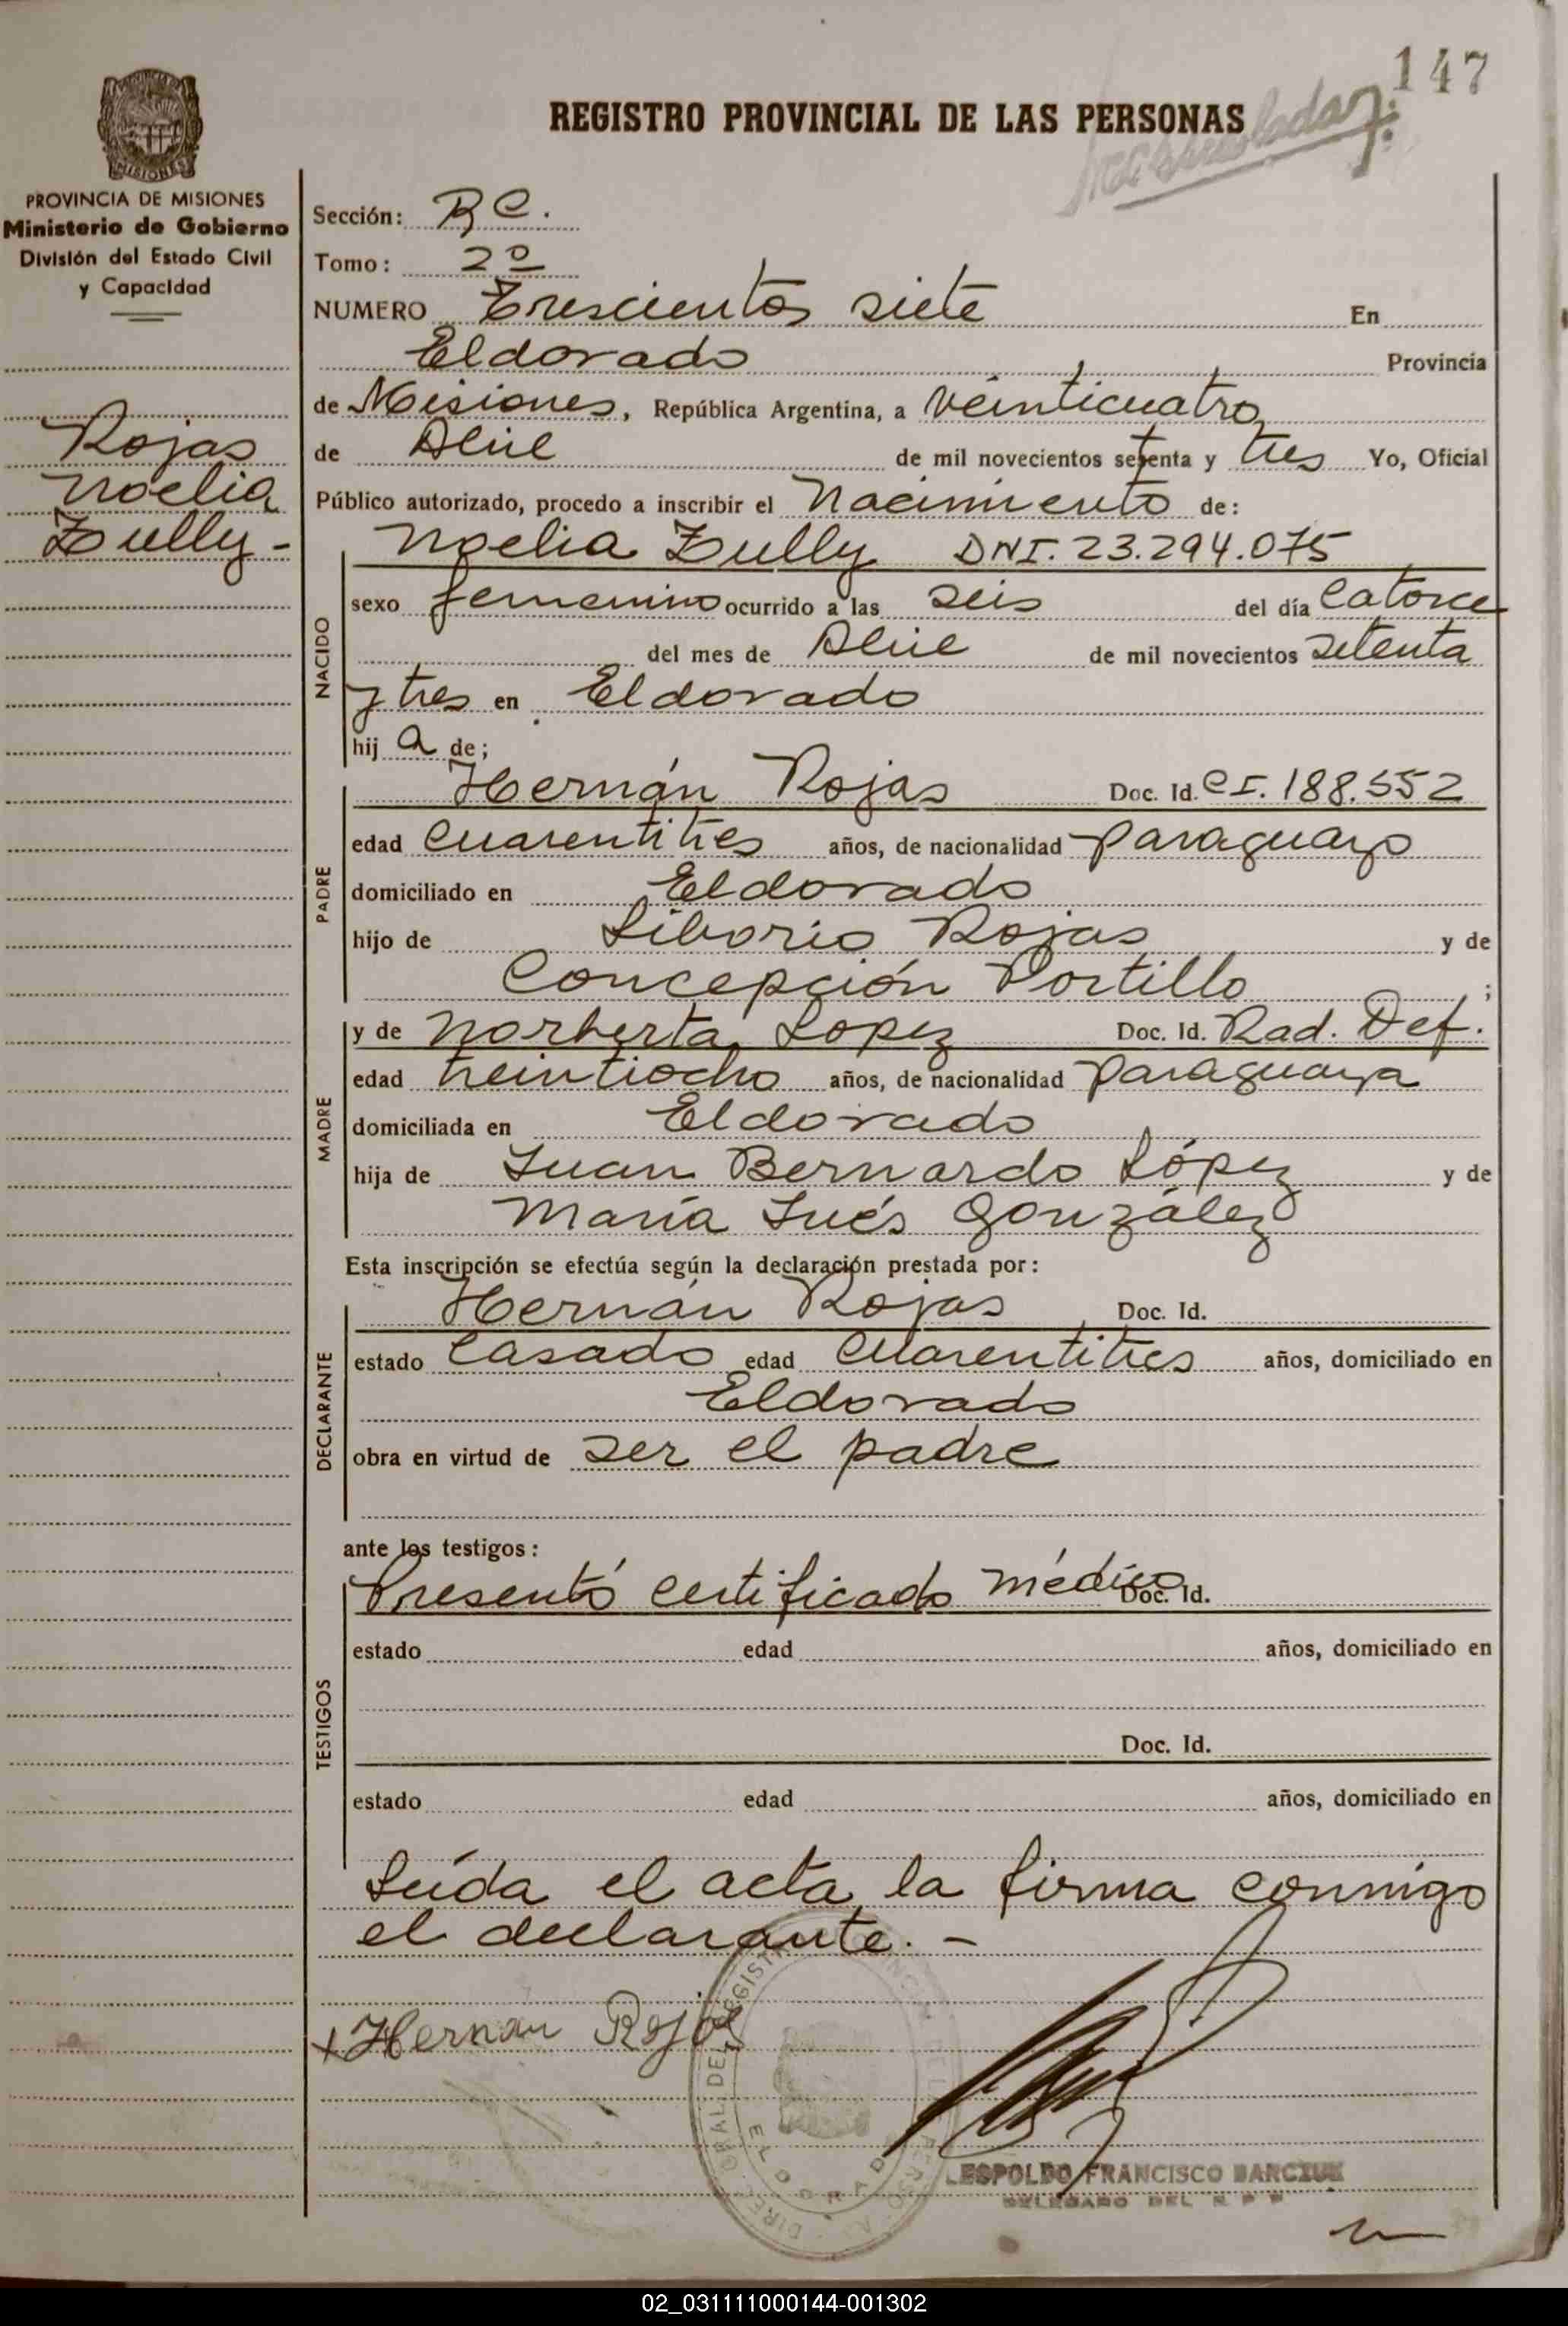 147
REGISTRO PROVINCIAL DE LAS PERSONAS
MISIONES
PROVINCIA DE MISIONES
Ministerio de Gobierno
División del Estado Civil
y Capacidad
Rojas
Noelia
Zully -
Sección: RC.
Tomo: 2º
NUMERO Trescientos siete En
Eldorado Provincia
de Misiones, República Argentina, a veinticuatro
de Abril de mil novecientos setenta y tres Yo, Oficial
Público autorizado, procedo a inscribir el Nacimiento de:
NACIDO
Noelia Zully DNI. 23.294.075
sexo femenino ocurrido a las seis del día catorce
del mes de Abril de mil novecientos setenta
y tres en Eldorado
hij a de;
PADRE
Hernán Rojas Doc. Id. CI. 188.552
edad cuarentitres años, de nacionalidad paraguayo
domiciliado en Eldorado
hijo de Liborio Rojas y de
Concepción Portillo ;
MADRE
y de Norberta Lopez Doc. Id. Rad. Def.
edad treintiocho años, de nacionalidad paraguaya
domiciliada en Eldorado
hija de Juan Bernardo López y de
María Inés González
Esta inscripción se efectúa según la declaración prestada por:
DECLARANTE
Hernán Rojas Doc. Id.
estado casado edad cuarentitres años, domiciliado en
Eldorado
obra en virtud de ser el padre
ante los testigos:
TESTIGOS
Presentó certificado médico Doc. Id.
estado edad años, domiciliado en
Doc. Id.
estado edad años, domiciliado en
Leída el acta la firma conmigo
el declarante. -
x Hernan Rojas
ELDORADO
LEOPOLDO FRANCISCO
DELEGADO DEL R P P
02_031111000144-001302